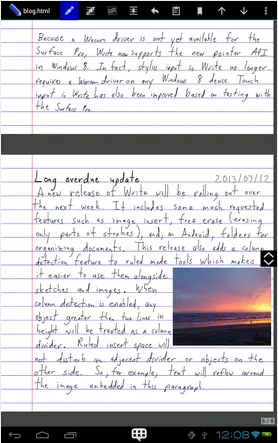 blog.html
Because a Wacom driver is not yet available for the
Surface Pro, Write now supports the new pointer API
in Windows 8. In fact, stylus input in Write no longer
requires a Wacom driver on any Windows 8 device. Touch
input in Write has also been improved based on testing with
the Surface Pro.
Long overdue update 2013/07/12
A new release of Write will be rolling out over
the next week. It includes some much requested
features such as image insert, free erase (erasing
only parts of strokes), and, on Android, folders for
organizing documents. This release also adds a column
detection feature to ruled mode tools which makes
it easier to use them alongside
sketches and images. When
column detection is enabled, any
object greater than two lines in
height will be treated as a column
divider. Ruled insert space will
not disturb an adjacent divider or objects on the
other side. So, for example, text will reflow around
the image embedded in this paragraph.
12:08